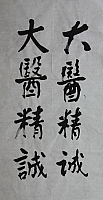 大醫精誠
大醫精誠